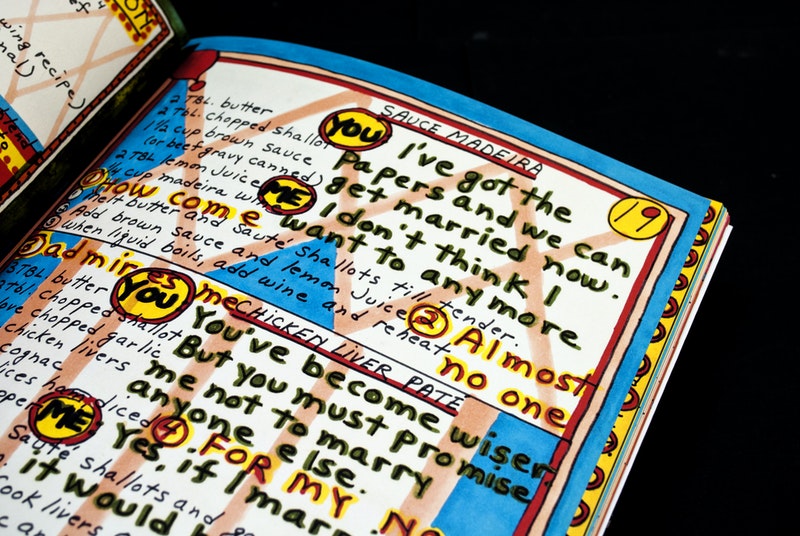 wing recipe)
nal)
SAUCE MADEIRA
19
2 TBL. butter
2 TBL. chopped shallot
1 1/2 cup brown sauce
(or beef gravy canned)
2 TBL lemon juice
cup madeira
① melt butter and sauté shallots till tender.
② Add brown sauce and lemon juice
③ when liquid boils, add wine and reheat
YOU I've got the
Papers and we can
get married now.
ME I don't think I
want to any more
① How come
② Almost
no one
③ admires me
CHICKEN LIVER PATE
3 TBL butter
chopped shallot
chopped garlic
chicken livers
cognac
diced
YOU You've become wiser.
But you must promise
me not to marry
anyone else.
ME Yes, if I
it would
④ FOR MY
Sauté shallots and
Cook livers